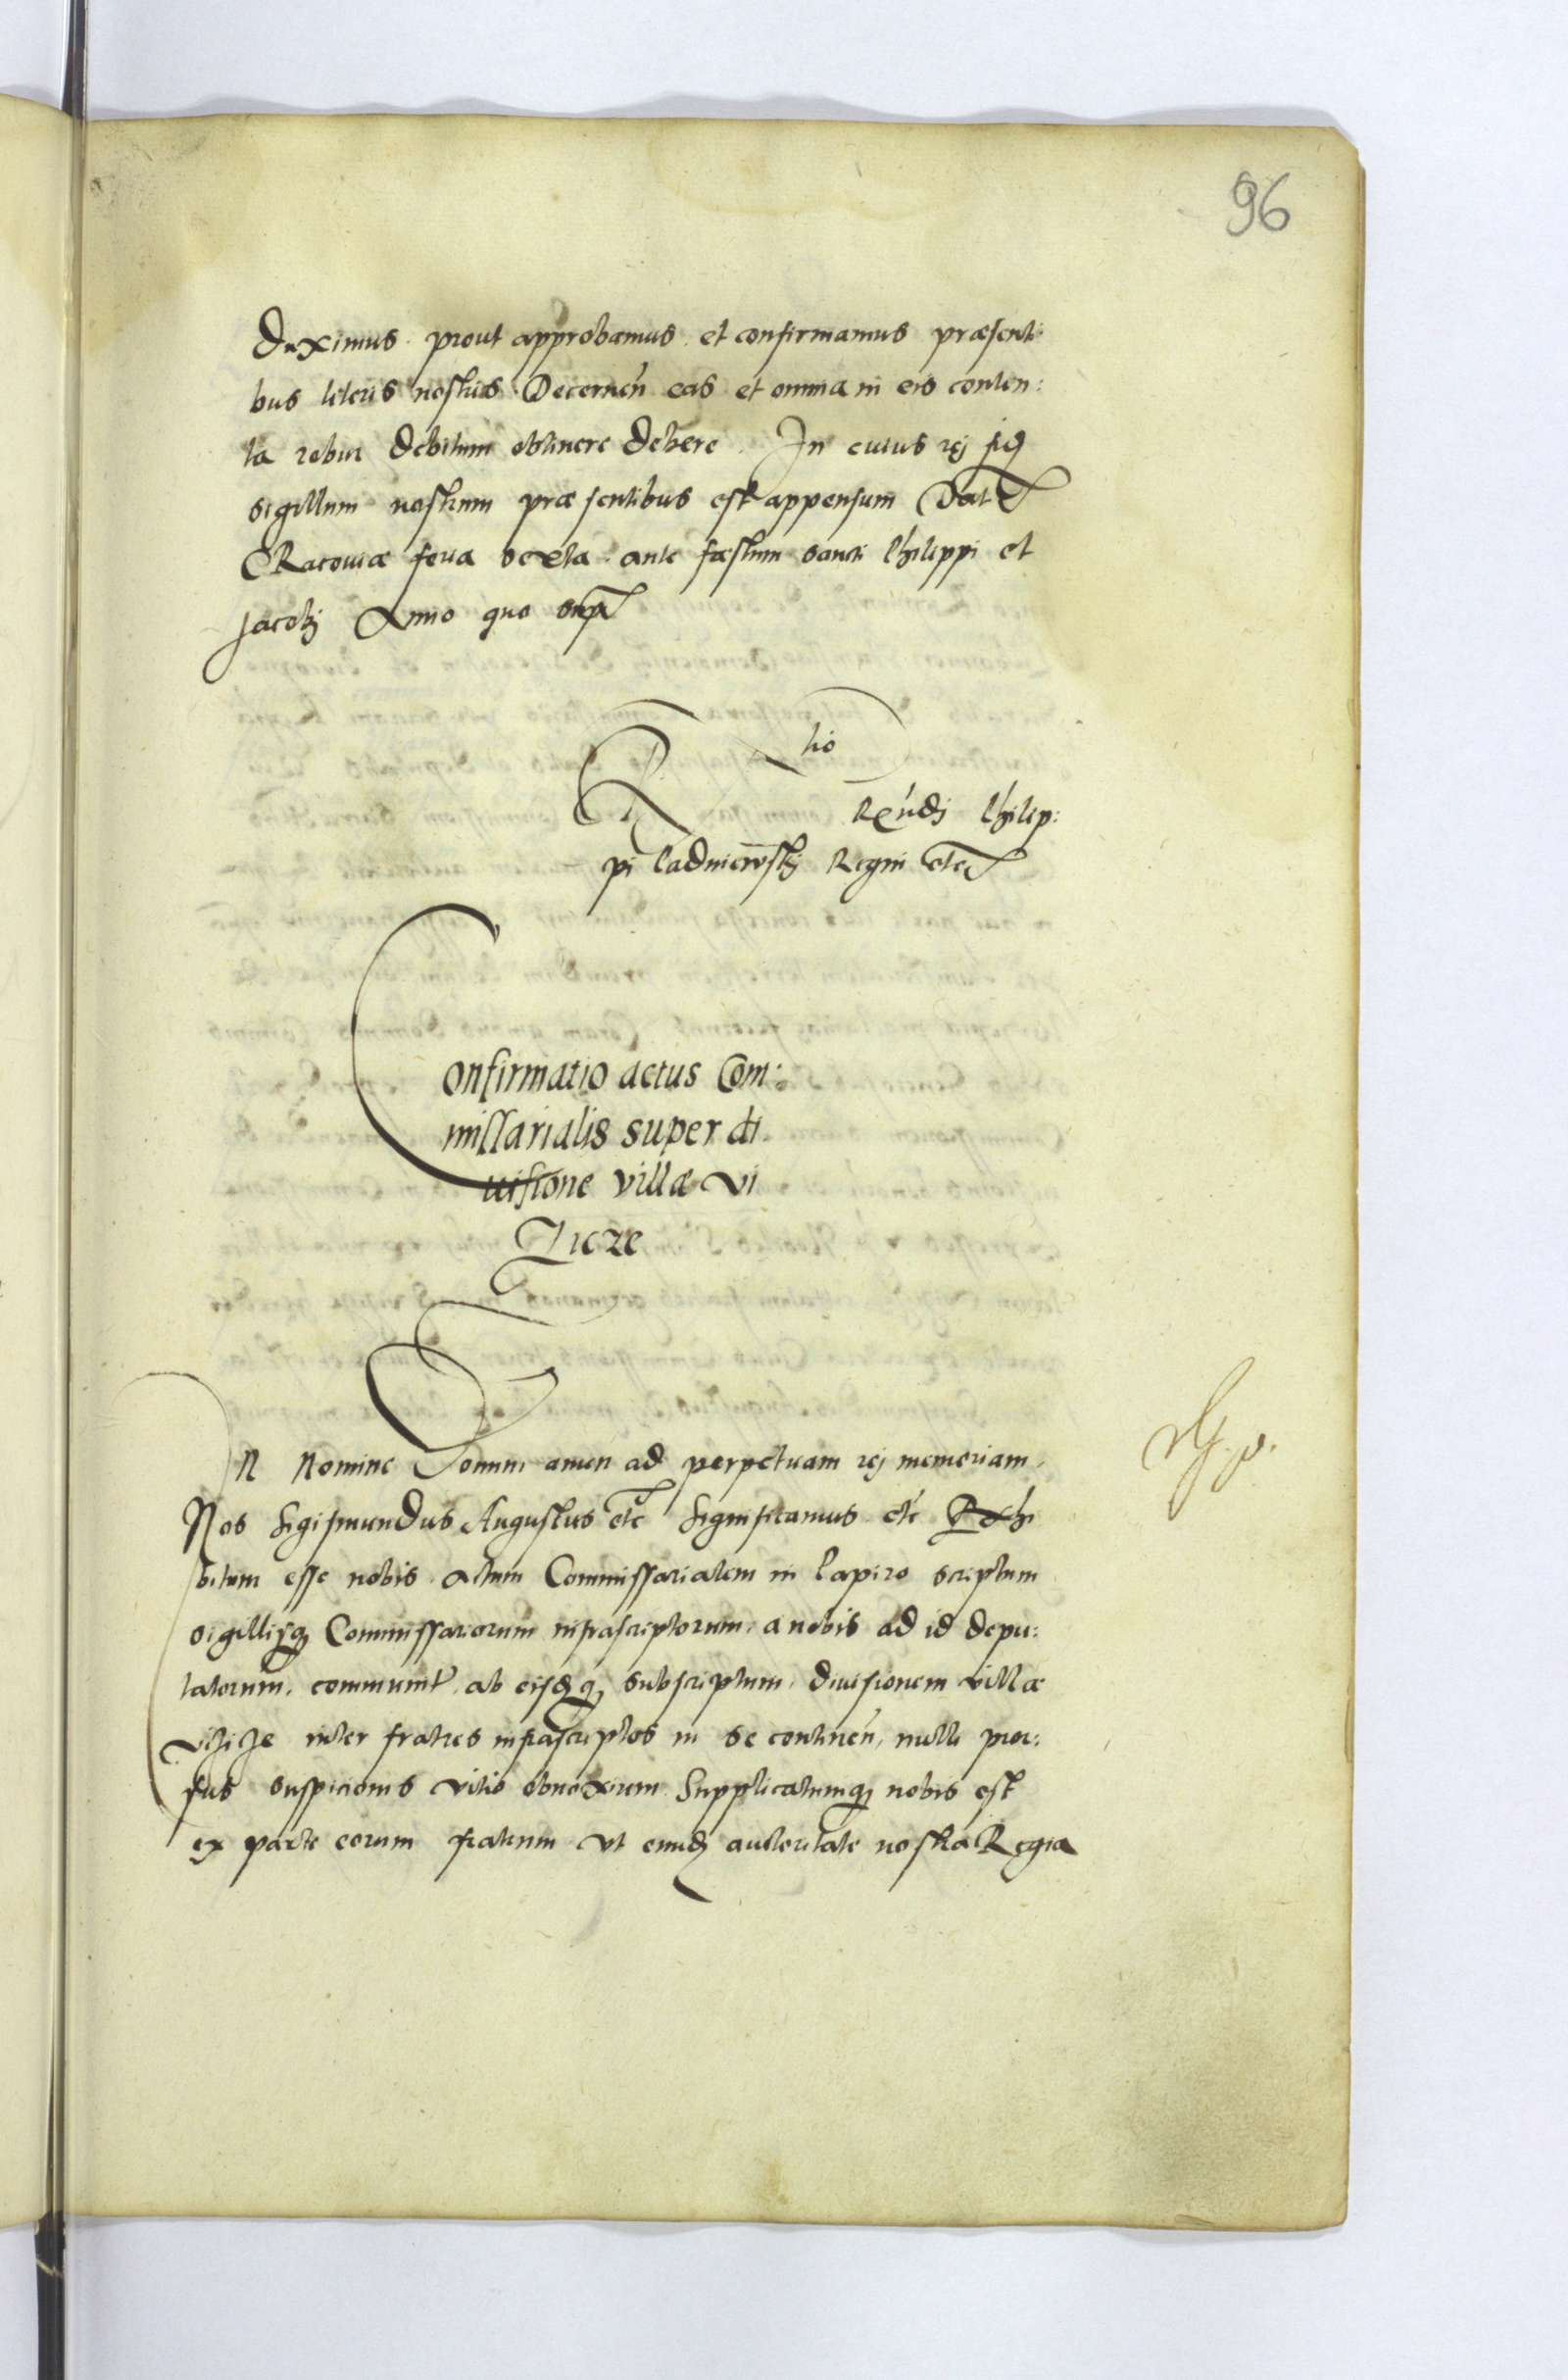 96
duximus prout approbamus et confirmamus præsenti
bus literis nostris Decernen̄ eas et omnia in eis conten:
ta robur debitum obtinere debere. In cuius rej
sigillum nostrum præsentibus est appensum Dat
CRacouiæ feria sexta ante fæstum sancti Philippi et
Jacobj Anno quo supra
R tio
Reūdj Philip:
pi Padniewskj Regni etc
Confirmatio actus Com:
missarialis super di
uisione villæ Vi
zicze
IN Nomine Domini amen ad perpetuam rej memoriam.
Nos Sigismundus Augustus etc Significamus etc Exhi
bitum esse nobis actum Commissarialem in Papiro scriptum
sigillisq3 Commissariorum infrascriptorum, a nobis ad id depu:
tatorum, communit ab eisdq3 subscriptum, diuisionem villæ
inter fratres infrascriptos in se continen̄, nulli pror:
sus suspicionis vitio obnoxium Supplicatumq3 nobis est
ex parte eorum fratrum vt eund autoritate nostra Regia